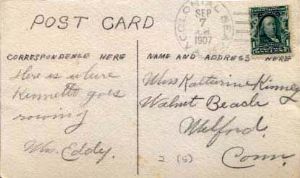 POST CARD
SEP
7
1907
CORRESPONDENCE HERE
Here is where
Kennetto goes
rowing
Wm. Eddy.
NAME AND ADDRESS HERE
Miss Katherine Kinney
Walnut Beach
Milford.
Conn.
2 (5)